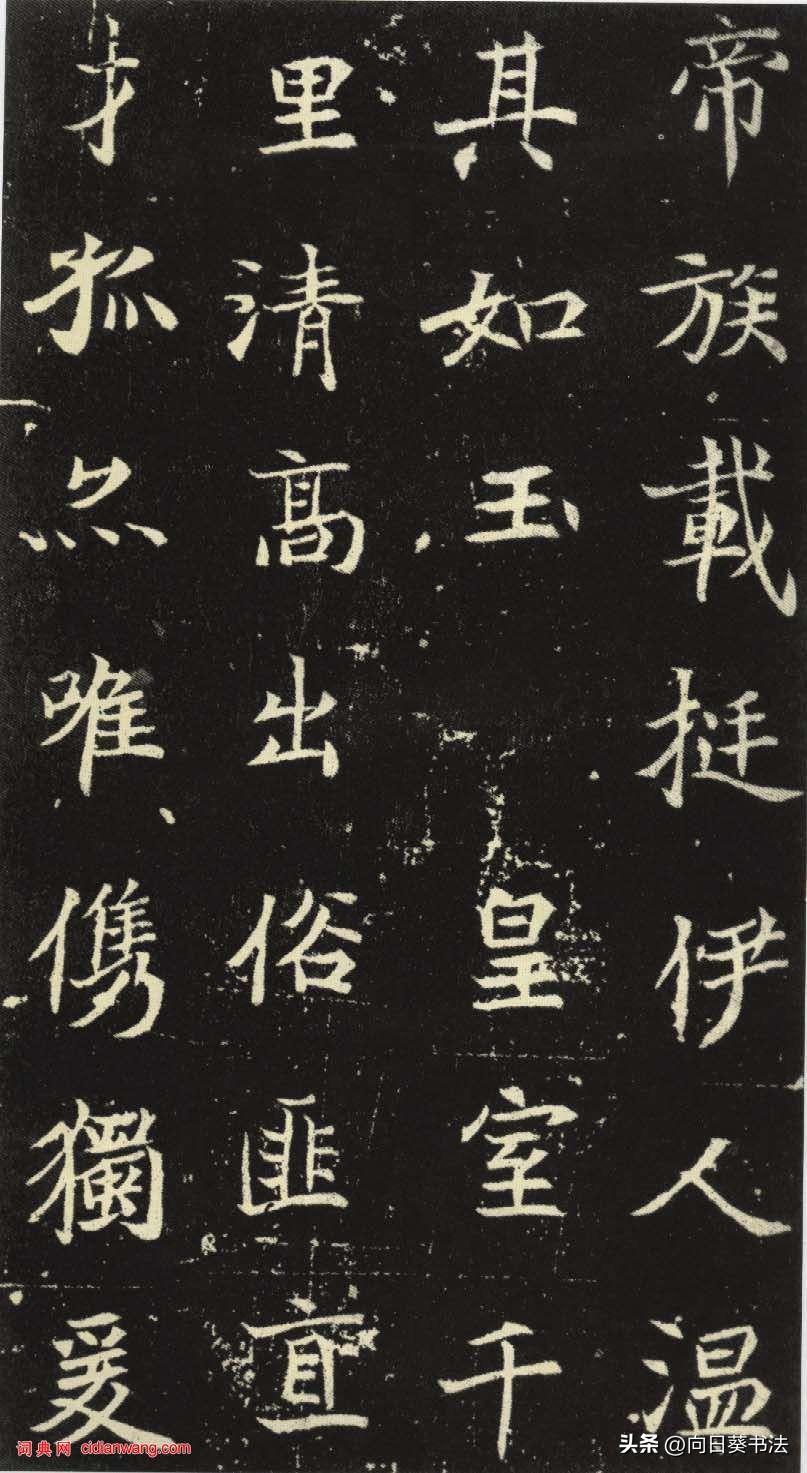 帝族載挺伊人温
其如玉皇室千
里清高出俗匪直
才狐
唯儁獨爰
词典网 cidianwang.com
头条 @向日葵书法